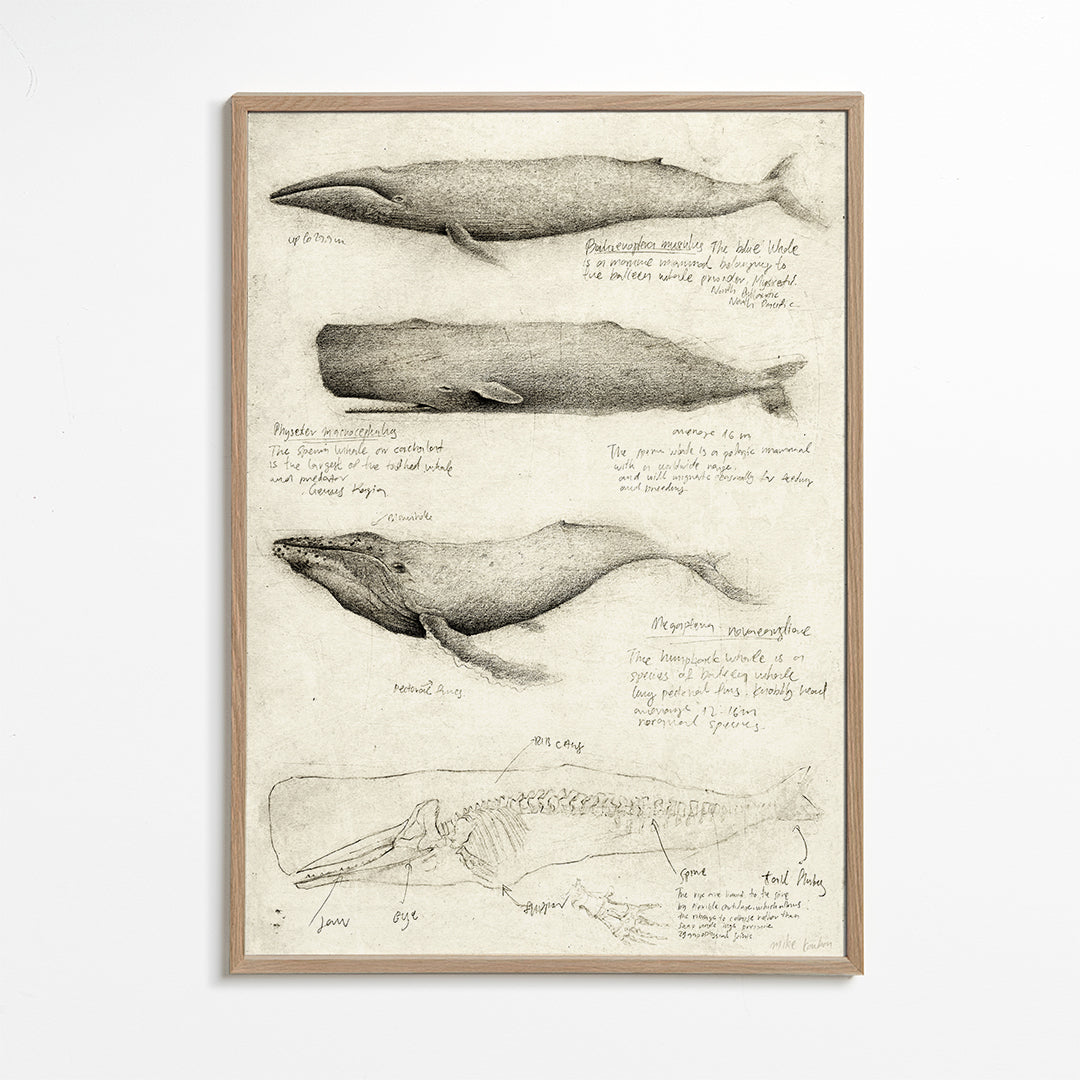 up to 29,9 m
Balaenoptera musculus The blue Whale
is a marine mammal belonging to
the baleen whale
North Atlantic
North Pacific
Physeter macrocephalus
The sperm whale or cachalot
is the largest of the toothed whale
and predator
Genus
average 16 m
The sperm whale is a pelagic mammal
with a worldwide range.
and will migrate seasonally for feeding
and breeding
Blowhole
Megaptera novaeangliae
The humpback whale is a
species of baleen whale
long pectoral fins. Knobbly head
average 12-16m
rorqual species.
Pectoral fins
Rib cage
Spine
tail
The ribs are bound to the spine
by flexible cartilage, which allows
the ribcage to collapse rather than
snap under high pressure
Jaw
eye
flipper
mike